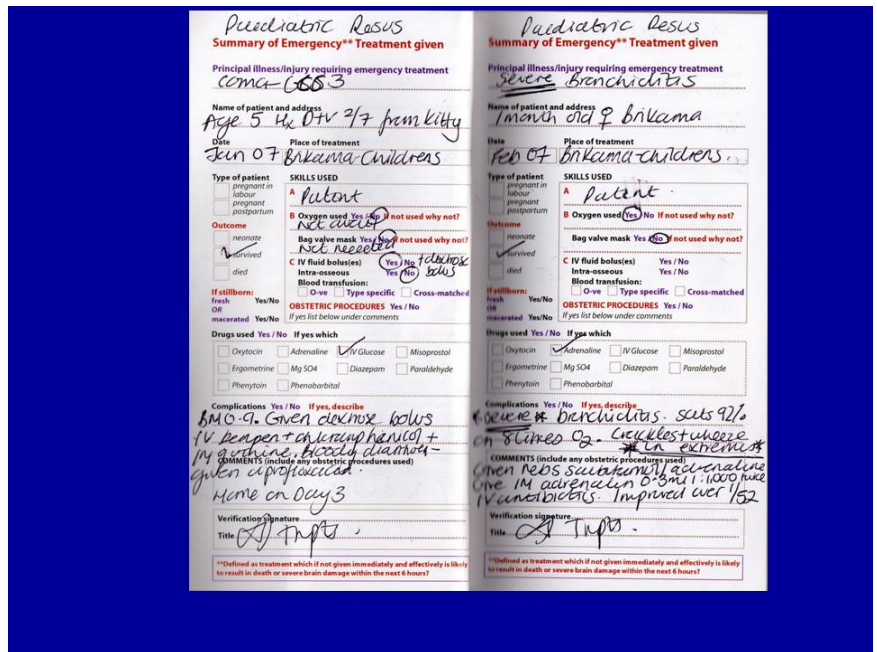 Paediatric Resus
Summary of Emergency** Treatment given
Principal illness/injury requiring emergency treatment
Coma GCS 3
Name of patient and address
Age 5 Hx D+V 2/7 from Kitty
Date Place of treatment
Jan 07 Brikama-Childrens
Type of patient SKILLS USED
pregnant in labour
A Patent
pregnant postpartum
B Oxygen used Yes / No If not used why not?
Not avail
Outcome
neonate
Bag valve mask Yes / No If not used why not?
Not needed
survived
C IV fluid bolus(es) Yes / No + dextrose bolus
died
Intra-osseous Yes / No
Blood transfusion:
O-ve Type specific Cross-matched
If stillborn:
fresh Yes/No
OR
macerated Yes/No
OBSTETRIC PROCEDURES Yes / No
If yes list below under comments
Drugs used Yes / No If yes which
Oxytocin Adrenaline IV Glucose Misoprostol
Ergometrine Mg SO4 Diazepam Paraldehyde
Phenytoin Phenobarbital
Complications Yes / No If yes, describe
Given dextrose bolus
IV benpen + chloramphenicol +
IM quinine. Bloody diarrhoea -
COMMENTS (include any obstetric procedures used)
given ciprofloxacin.
Home on Day 3
Verification signature
Title
**Defined as treatment which if not given immediately and effectively is likely
to result in death or severe brain damage within the next 6 hours?
Paediatric Resus
Summary of Emergency** Treatment given
Principal illness/injury requiring emergency treatment
Severe Bronchiolitis
Name of patient and address
1 month old ♀ Brikama
Date Place of treatment
Feb 07 Brikama-childrens.
Type of patient SKILLS USED
pregnant in labour
A Patent.
pregnant postpartum
B Oxygen used Yes / No If not used why not?
Outcome
neonate
Bag valve mask Yes / No If not used why not?
survived
C IV fluid bolus(es) Yes / No
died
Intra-osseous Yes / No
Blood transfusion:
O-ve Type specific Cross-matched
If stillborn:
fresh Yes/No
OR
macerated Yes/No
OBSTETRIC PROCEDURES Yes / No
If yes list below under comments
Drugs used Yes / No If yes which
Oxytocin Adrenaline IV Glucose Misoprostol
Ergometrine Mg SO4 Diazepam Paraldehyde
Phenytoin Phenobarbital
Complications Yes / No If yes, describe
severe * bronchiolitis. sats 92%
on 8 litres O2. Crackles + wheeze
* In extremis *
COMMENTS (include any obstetric procedures used)
Given nebs salbutamol / adrenaline
Give IM adrenalin 0.3ml 1:1,000 twice
IV antibiotics. Improved over 1/52
Verification signature
Title
**Defined as treatment which if not given immediately and effectively is likely
to result in death or severe brain damage within the next 6 hours?